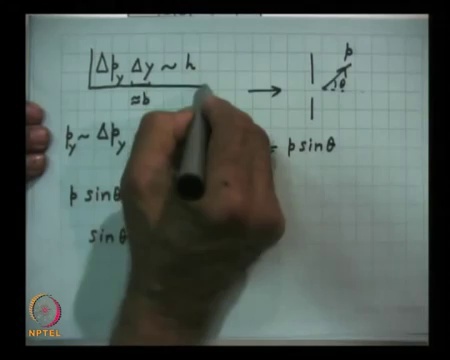 Δp_y Δy ~ h
≈ b
p
θ
p_y ~ Δp_y
= p sinθ
p sinθ
sinθ
NPTEL